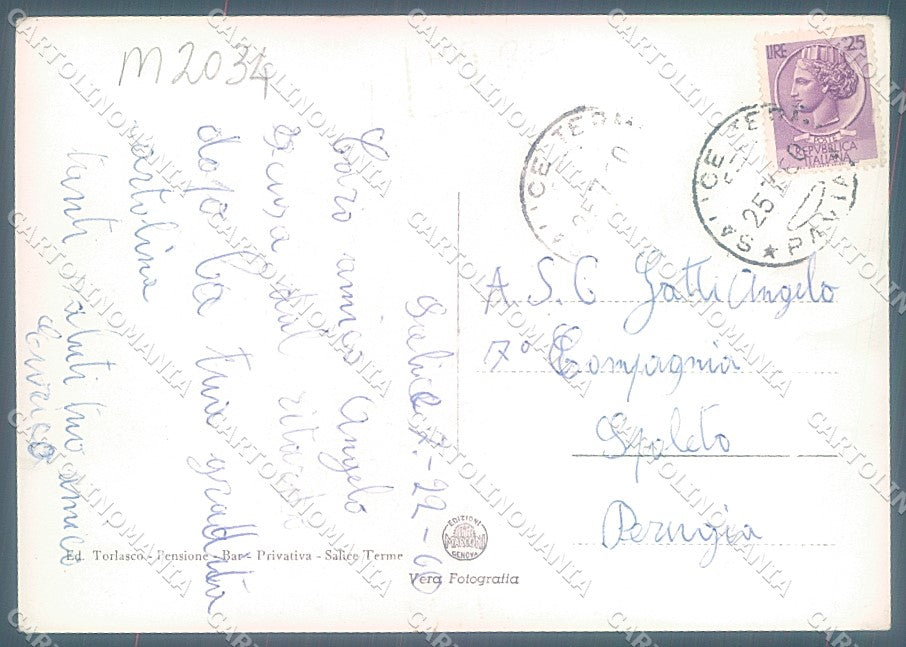 M2034
Salice 7-22-60
Caro amico Angelo
Scusa dal ritardo
dopo la tua gradita
cartolina
tanti saluti tuo amico
Enrico
LIRE 25
POSTE
REPVBBLICA
ITALIANA
SALICE TERME
SALICE TERME
25
★ PAVIA
A.S.C Gatti Angelo
7° Compagnia
Spoleto
Perugia
EDIZIONI
GENOVA
Ed. Torlasco - Pensione - Bar - Privativa - Salice Terme
Vera Fotografia
CARTOLINOMANIA